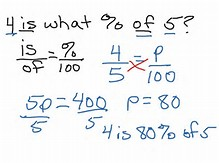 4 is what % of 5?
is/of = %/100 4/5 = P/100
5p/5 = 400/5 p = 80
4 is 80% of 5